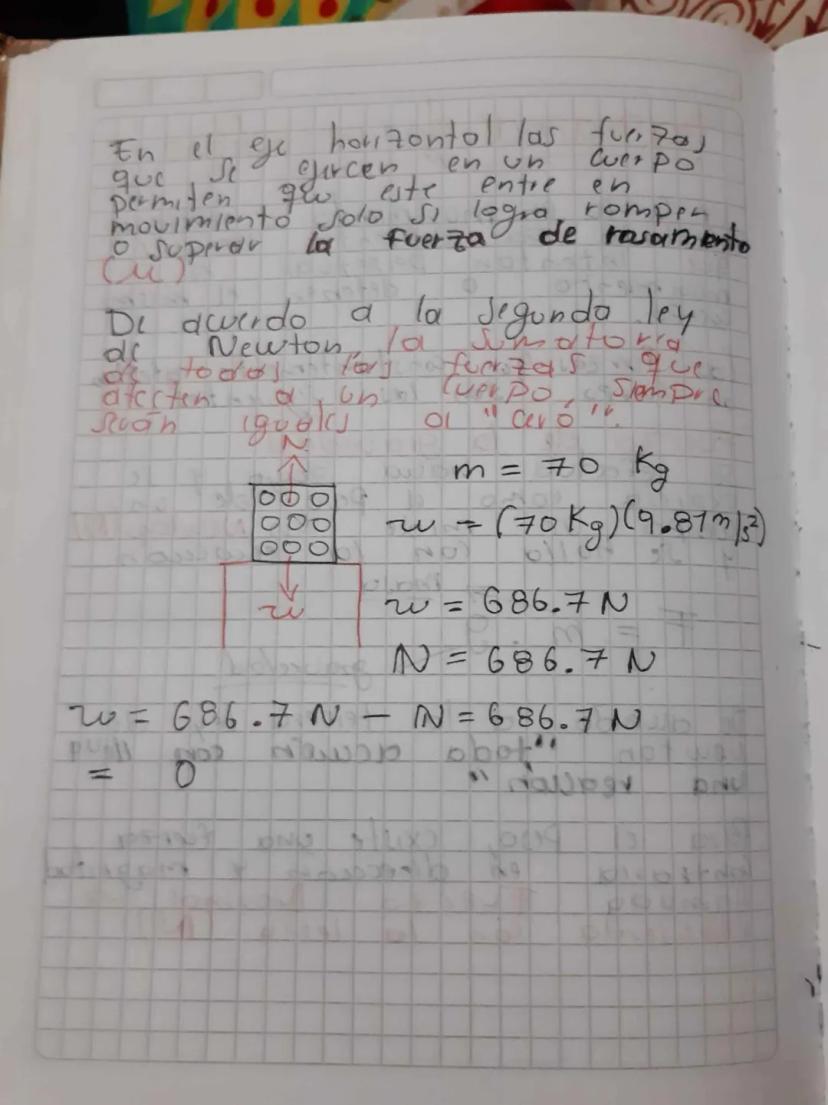 En el eje horizontal las fuerzas
que se ejercen en un cuerpo
permiten que este entre en
movimiento solo si logra romper
o superar la fuerza de rosamiento
(u)
De acuerdo a la segunda ley
de Newton, la sumatoria
de todas las fuerzas que
afecten a un cuerpo, siempre
serán iguales a "cero".
N
m = 70 Kg
w = (70 Kg)(9.81 m/s²)
w
w = 686.7 N
N = 686.7 N
w = 686.7 N - N = 686.7 N
= 0